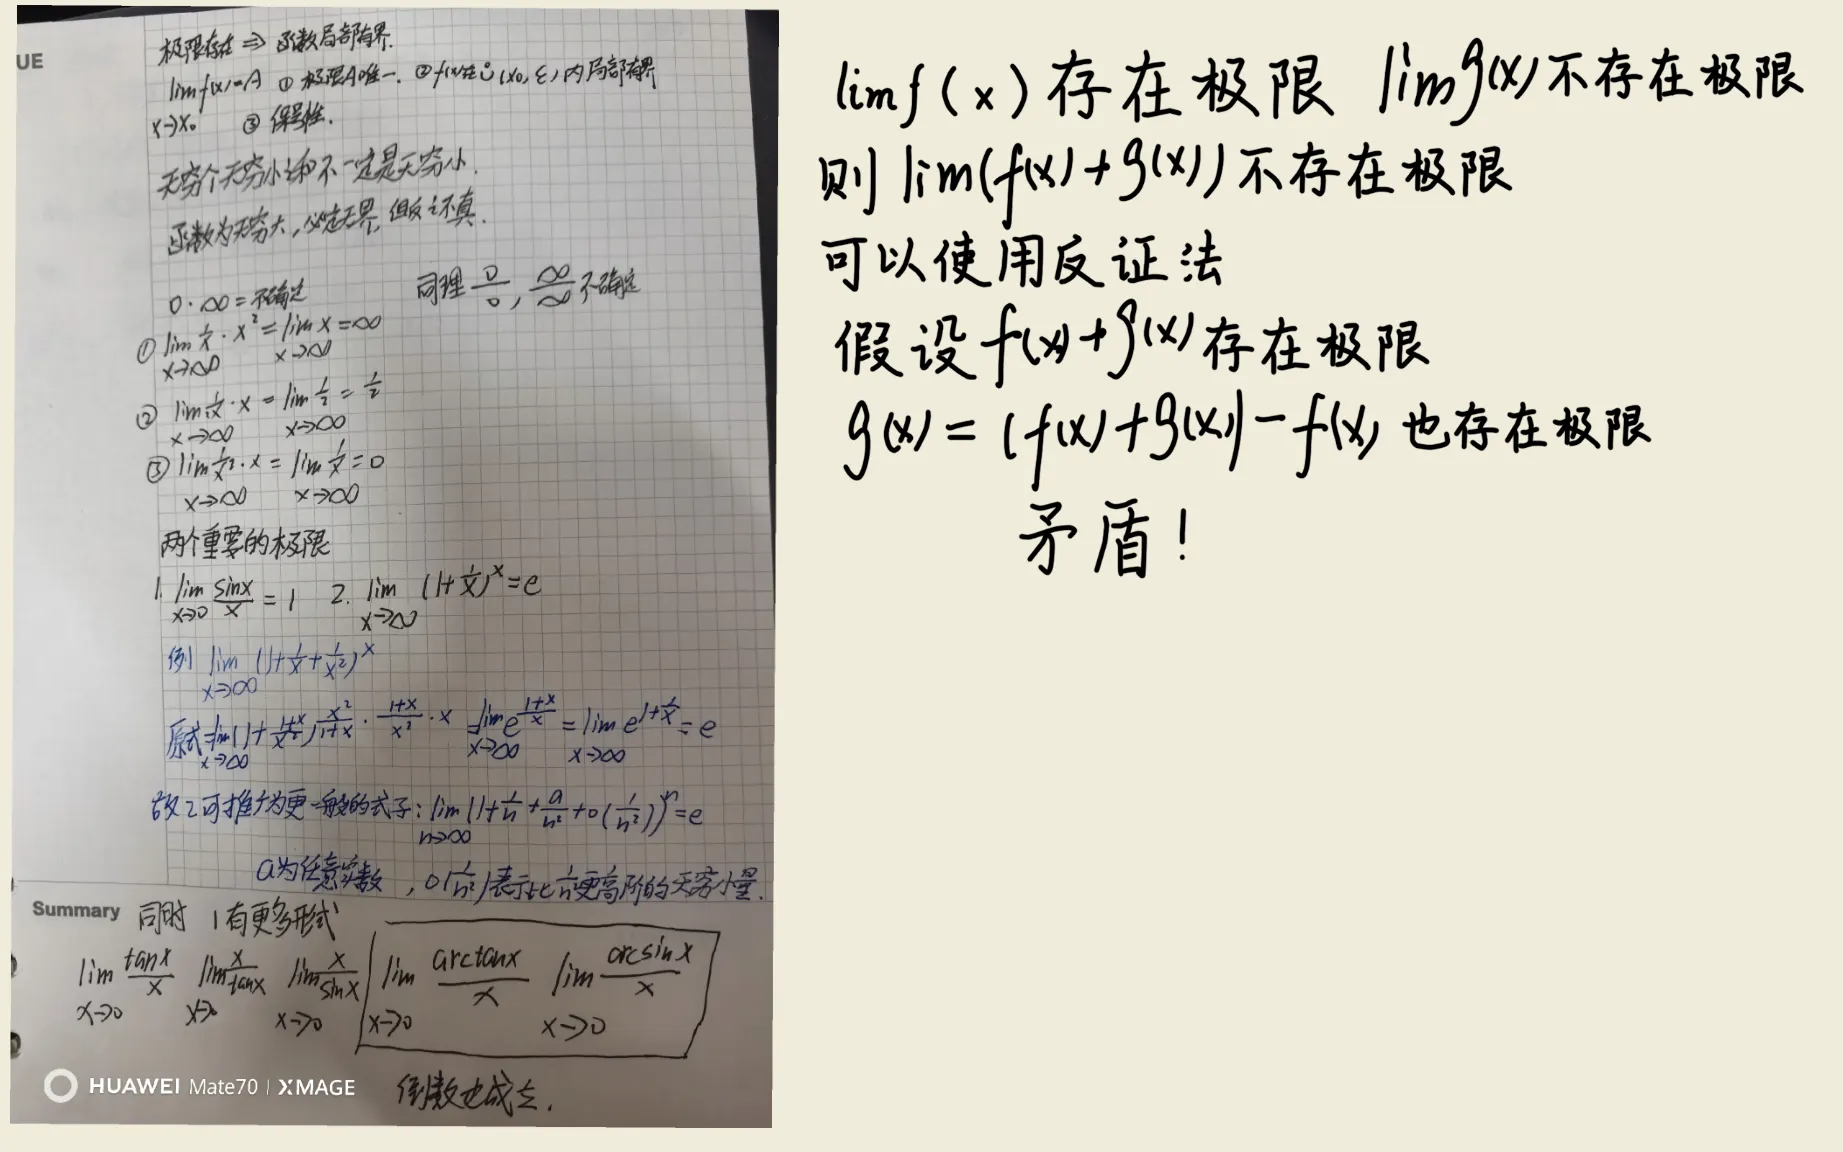 UE
极限存在 ⇒ 函数局部有界.
lim f(x)=A ① 极限A唯一. ② f(x)在Ů(x₀, ε)内局部有界
x→x₀ ③ 保号性.
无穷个无穷小之和不一定是无穷小.
函数为无穷大, 必定无界, 但反之不真.
0·∞=不确定 同理 0/0, ∞/∞ 不确定
① lim 1/x · x² = lim x = ∞
x→∞ x→∞
② lim · x = lim 1/2 = 1/2
x→∞ x→∞
③ lim 1/x² · x = lim 1/x = 0
x→∞ x→∞
两个重要的极限
1. lim sinx/x = 1 2. lim (1+1/x)^x = e
x→0 x→∞
例 lim (1+1/x+1/x²)^x
x→∞
原式=lim(1+(1+x)/x²)^(x²/(1+x) · (1+x)/x² · x) = lim e^((1+x)/x) = lim e^(1+1/x) = e
x→∞ x→∞ x→∞
故2可推广为更一般的式子: lim (1+1/n+a/n²+o(1/n²))^n = e
n→∞
a为任意实数, o(1/n²)表示比1/n²更高阶的无穷小量.
Summary 同时 1有更多形式
lim tanx/x lim x/tanx lim x/sinx lim arctanx/x lim arcsinx/x
x→0 x→0 x→0 x→0 x→0
倒数也成立.
HUAWEI Mate70 | XMAGE
lim f(x)存在极限 lim g(x)不存在极限
则 lim(f(x)+g(x))不存在极限
可以使用反证法
假设f(x)+g(x)存在极限
g(x)=(f(x)+g(x))-f(x)也存在极限
矛盾!